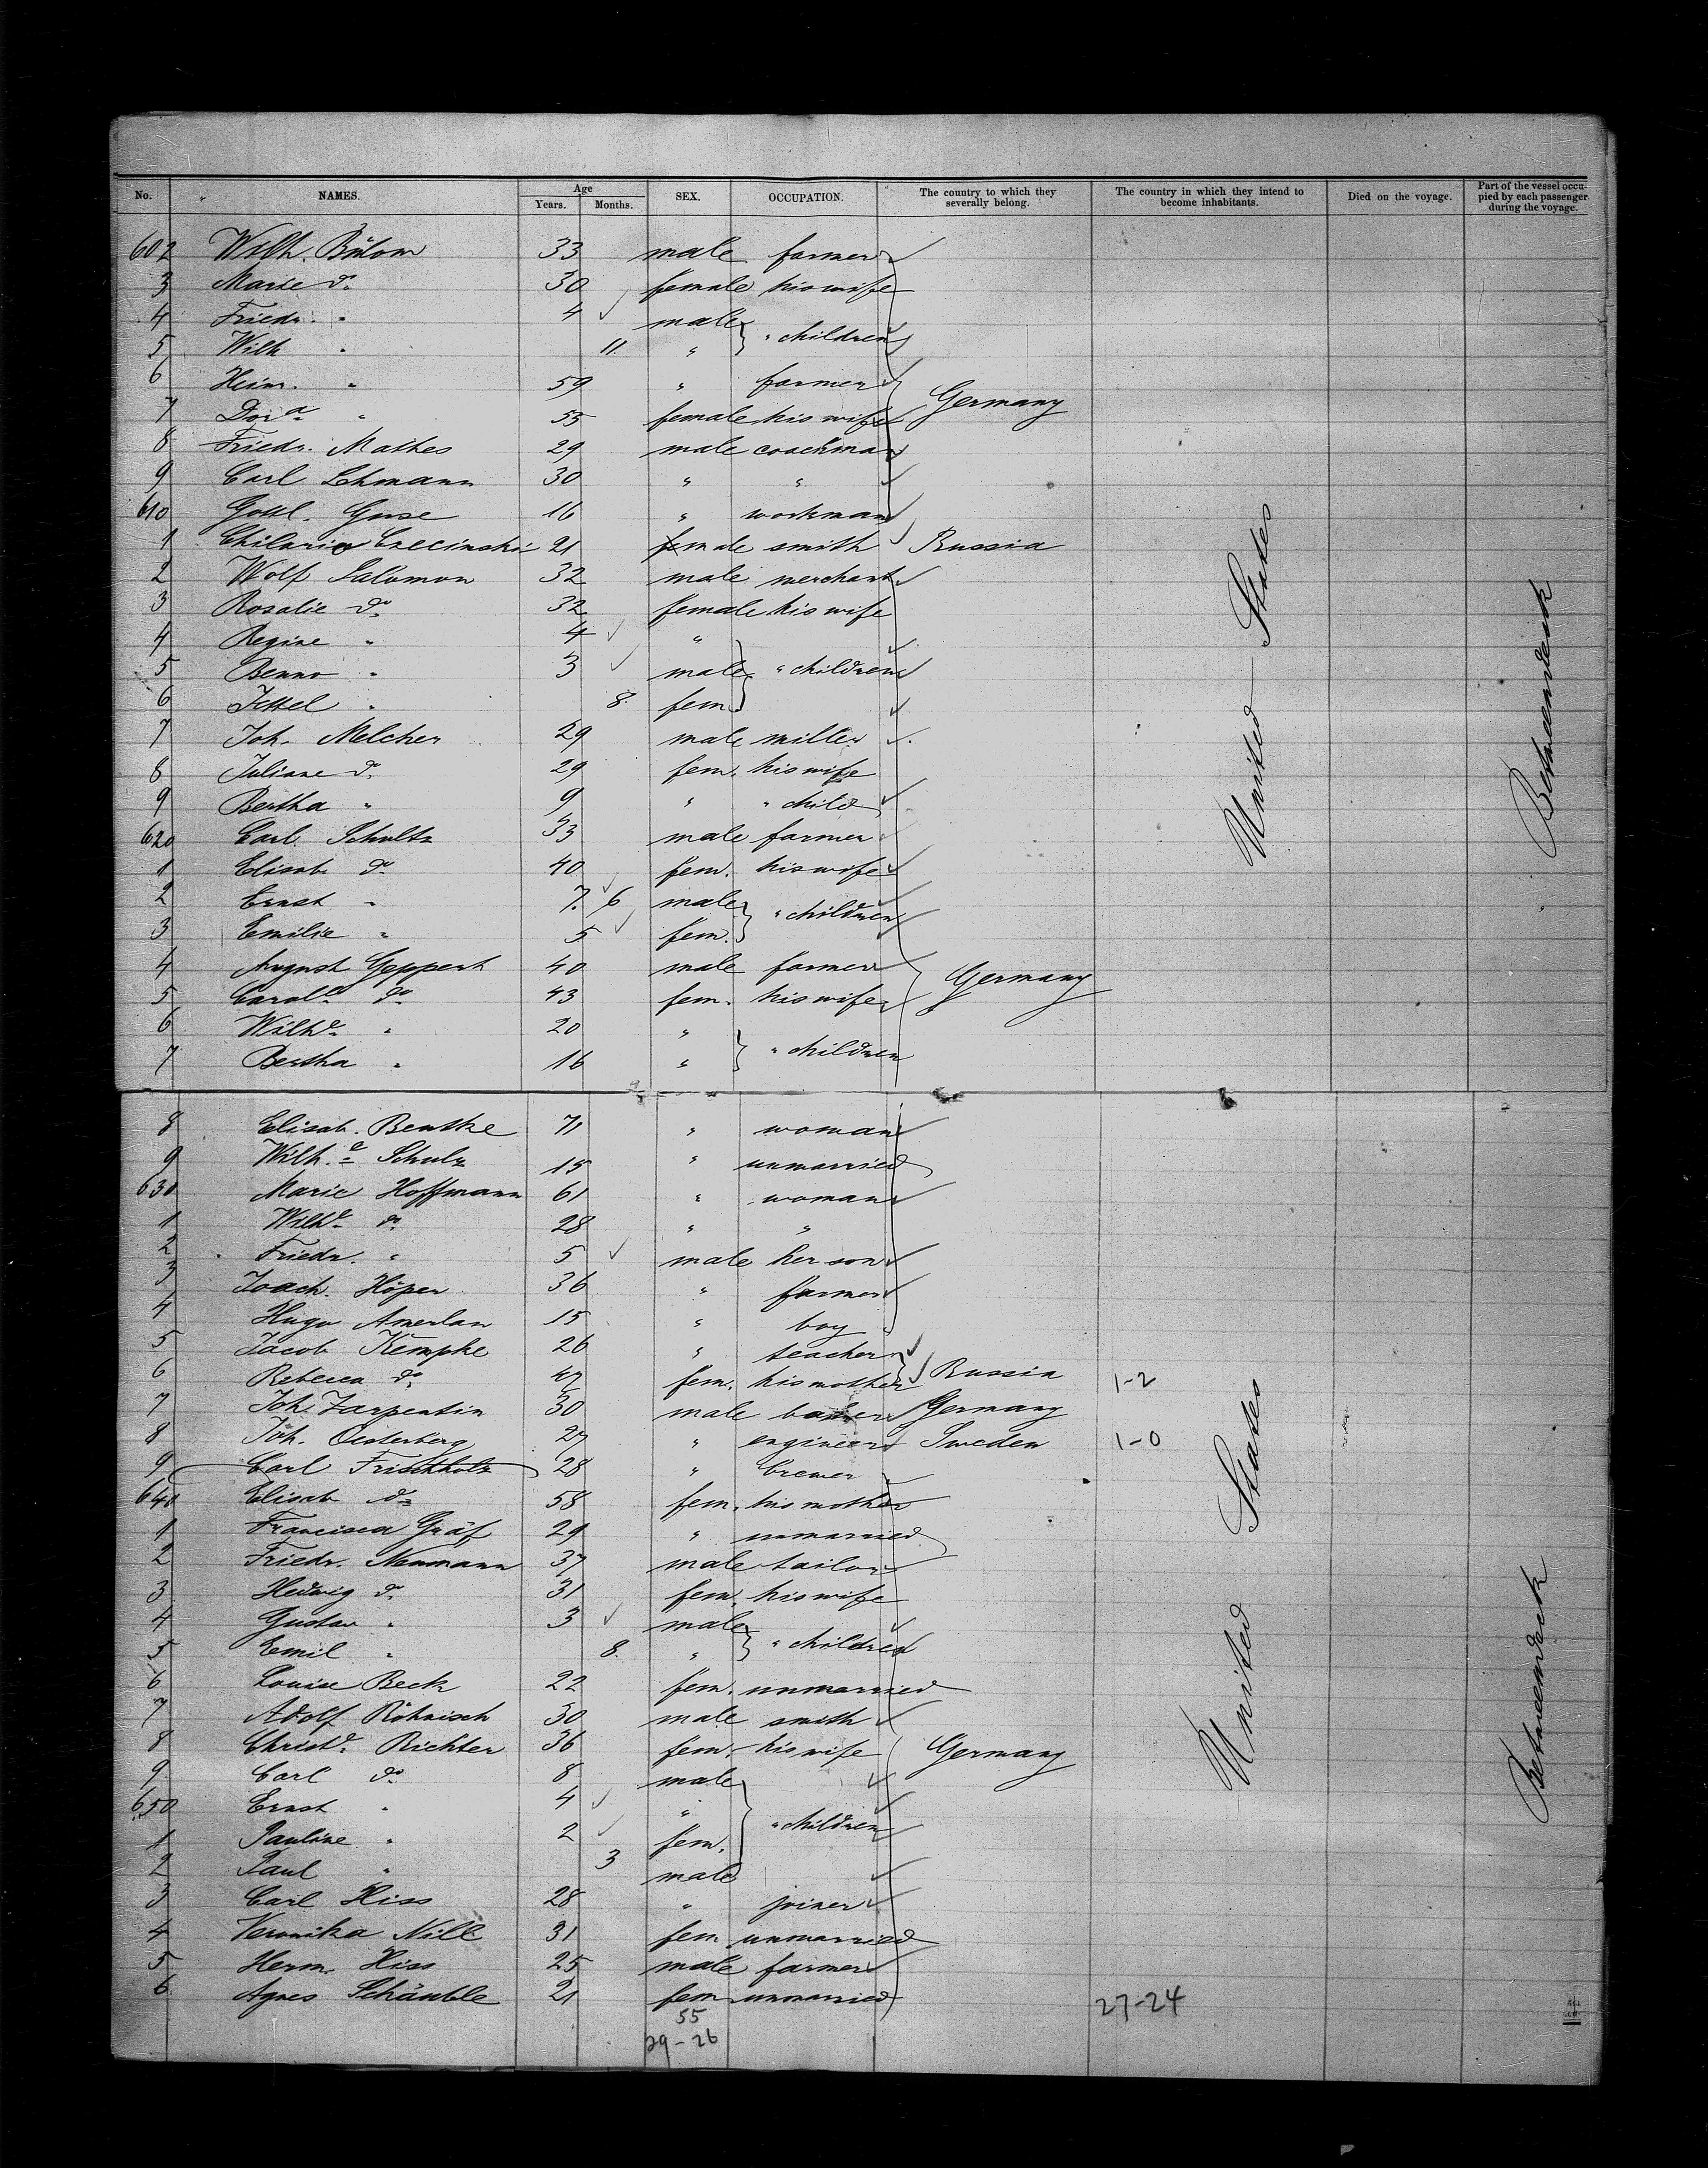 No. NAMES. Age Years. Months. SEX. OCCUPATION. The country to which they severally belong. The country in which they intend to become inhabitants. Died on the voyage. Part of the vessel occupied by each passenger during the voyage.
602 Wilh. Bülow 33 male farmer
3 Marie do 30 female his wife
4 Friedr. " 4 male
5 Wilh " 11. " " children
6 Heinr. " 59 " farmer
7 Dora " 55 female his wife Germany
8 Friedr. Mathes 29 male coachman
9 Carl Lehmann 30 " "
610 Gottl. Guse 16 " workman
1 21 female smith Russia
2 Wolf Salomon 32 male merchant
3 Rosalie do 32 female his wife
4 Regine " 4 "
5 Benno " 3 male " children
6 Jettel " 8. fem.
7 Joh. Melcher 29 male miller
8 Juliane do 29 fem. his wife
9 Bertha " 9 " " child
620 Carl Schultz 33 male farmer
1 Elisab. do 40 fem. his wife
2 Ernst " 7. 6 male " children
3 Emilie " 5 fem.
4 August Geppert 40 male farmer Germany
5 Carole do 43 fem. his wife
6 Wilhe " 20 "
7 Bertha " 16 " " children
United States
Betweendeck
8 Elisab. Benthe 71 " woman
9 Wilh.e Schulz 15 " unmarried
630 Marie Hoffmann 61 " woman
1 Wilhe do 28 " "
2 Friedr. " 5 male her son
3 Joach. Höper 36 " farmer
4 Hugo Amerlan 15 " boy
5 Jacob Kempke 26 " teacher
6 Rebecca do 47 fem. his mother Russia 1-2
7 Joh. Zarpentin 30 male baker Germany
8 Joh. Oesterberg 27 " engineer Sweden 1-0
9 Carl Frischholz 28 " brewer
640 Elisab do 58 fem. his mother
1 Francisca Gräf 29 " unmarried
2 Friedr. Neumann 37 male tailor
3 Hedwig do 31 fem. his wife
4 Gustav " 3 male
5 Emil " 8. " " children
6 Louise Beck 22 fem. unmarried
7 Adolf Röhnisch 30 male smith
8 Christe. Richter 36 fem. his wife Germany
9 Carl do 8 male
650 Ernst " 4 "
1 Pauline " 2 fem. " children
2 Paul " 3 male
3 Carl Hiss 28 " joiner
4 Veronika Nill 31 fem unmarried
5 Herm. Hiss 25 male farmer
6 Agnes Schäuble 21 fem unmarried
United States
Betweendeck
55
29-26
27-24